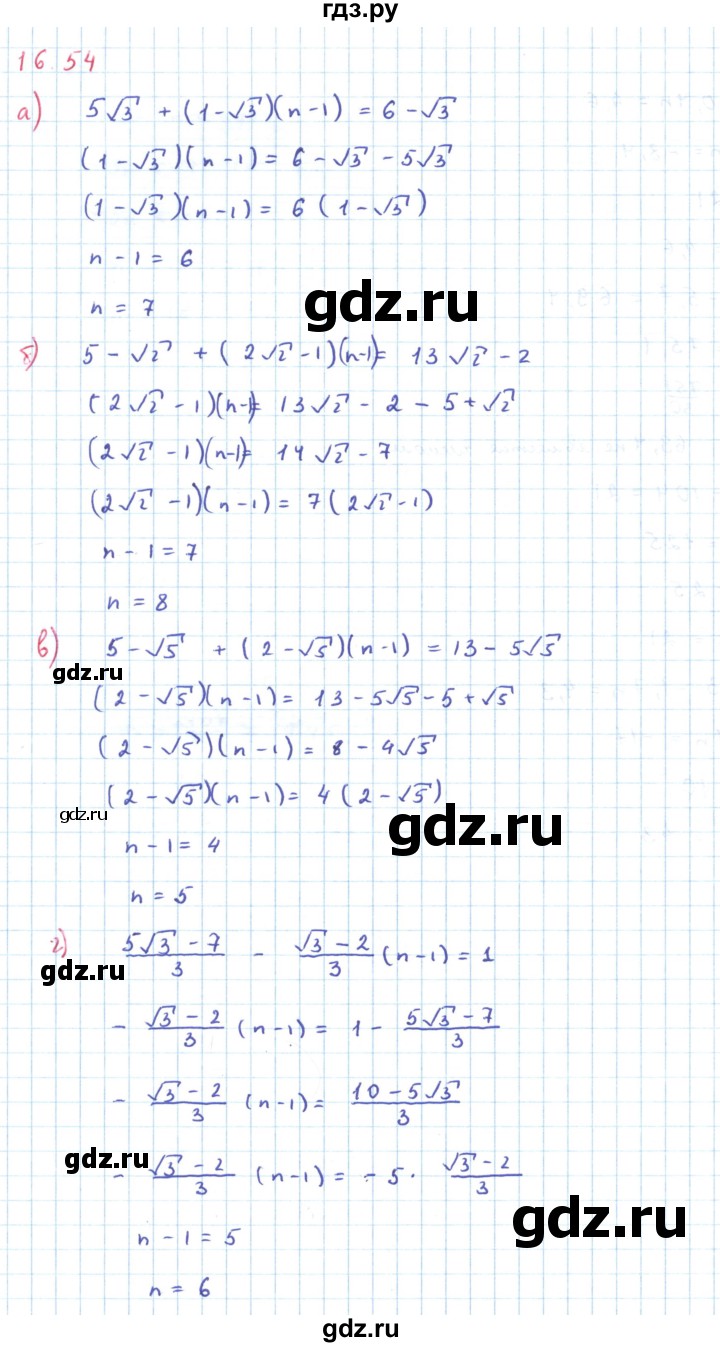 гдз.ру
16.54
а) 5√3 + (1-√3)(n-1) = 6-√3
(1-√3)(n-1) = 6-√3-5√3
(1-√3)(n-1) = 6(1-√3)
n-1 = 6
n = 7
gdz.ru
б) 5-√2 + (2√2-1)(n-1)= 13√2-2
(2√2-1)(n-1)= 13√2-2-5+√2
(2√2-1)(n-1)= 14√2-7
(2√2-1)(n-1) = 7(2√2-1)
n-1=7
n = 8
в) 5-√5 + (2-√5)(n-1) = 13-5√5
gdz.ru
(2-√5)(n-1) = 13-5√5-5+√5
(2-√5)(n-1) = 8-4√5
(2-√5)(n-1) = 4(2-√5)
gdz.ru
gdz.ru
n-1 = 4
n = 5
г) (5√3-7)/3 - (√3-2)/3 (n-1) = 1
gdz.ru
- (√3-2)/3 (n-1) = 1 - (5√3-7)/3
- (√3-2)/3 (n-1) = (10-5√3)/3
gdz.ru
- (√3-2)/3 (n-1) = -5· (√3-2)/3
gdz.ru
n-1 = 5
n = 6
gdz.ru